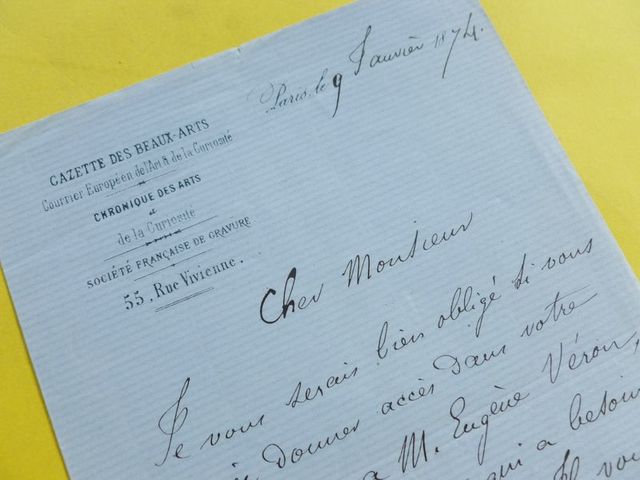 Paris, le 9 Janvier 1874.
GAZETTE DES BEAUX-ARTS
Courrier Européen de l'Art & de la Curiosité
CHRONIQUE DES ARTS
et
de la Curiosité
SOCIÉTÉ FRANÇAISE DE GRAVURE
55, Rue Vivienne.
Cher Monsieur
Je vous serais bien obligé si vous
donner accès dans votre
a M. Eugène Véron,
qui a besoin
vou